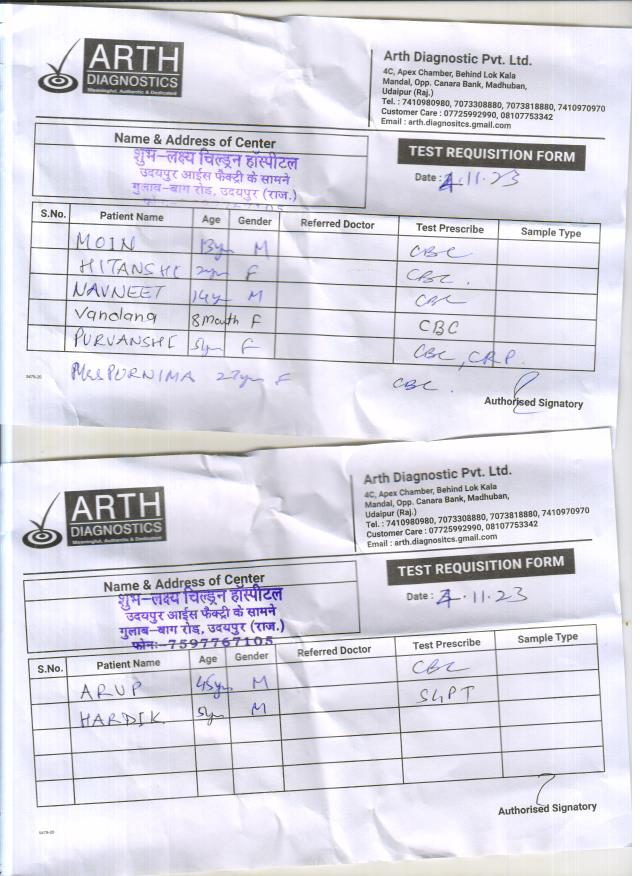 ARTH
DIAGNOSTICS
Meaningful, Authentic & Dedicated
Arth Diagnostic Pvt. Ltd.
4C, Apex Chamber, Behind Lok Kala
Mandal, Opp. Canara Bank, Madhuban,
Udaipur (Raj.)
Tel. : 7410980980, 7073308880, 7073818880, 7410970970
Customer Care : 07725992990, 08107753342
Email : arth.diagnositcs.gmail.com
Name & Address of Center
शुभ-लक्ष्य चिल्ड्रन हॉस्पीटल
उदयपुर आईस फैक्ट्री के सामने
गुलाब-बाग रोड, उदयपुर (राज.)
TEST REQUISITION FORM
Date : 4.11.23
S.No. Patient Name Age Gender Referred Doctor Test Prescribe Sample Type
MOIN 13yr M CBC
HITANSHI 2yr F CBC.
NAVNEET 14yr M CBC
Vandana 8 Month F CBC
PURVANSHI 5yr F CBC, CRP.
Mrs PURNIMA 27yr F CBC.
5479-20
Authorised Signatory
ARTH
DIAGNOSTICS
Meaningful, Authentic & Dedicated
Arth Diagnostic Pvt. Ltd.
4C, Apex Chamber, Behind Lok Kala
Mandal, Opp. Canara Bank, Madhuban,
Udaipur (Raj.)
Tel. : 7410980980, 7073308880, 7073818880, 7410970970
Customer Care : 07725992990, 08107753342
Email : arth.diagnositcs.gmail.com
Name & Address of Center
शुभ-लक्ष्य चिल्ड्रन हॉस्पीटल
उदयपुर आईस फैक्ट्री के सामने
गुलाब-बाग रोड, उदयपुर (राज.)
फोन:-7597767105
TEST REQUISITION FORM
Date : 4.11.23
S.No. Patient Name Age Gender Referred Doctor Test Prescribe Sample Type
ARUP 45yr M CBC
HARDIK 5yr M SGPT
5479-20
Authorised Signatory